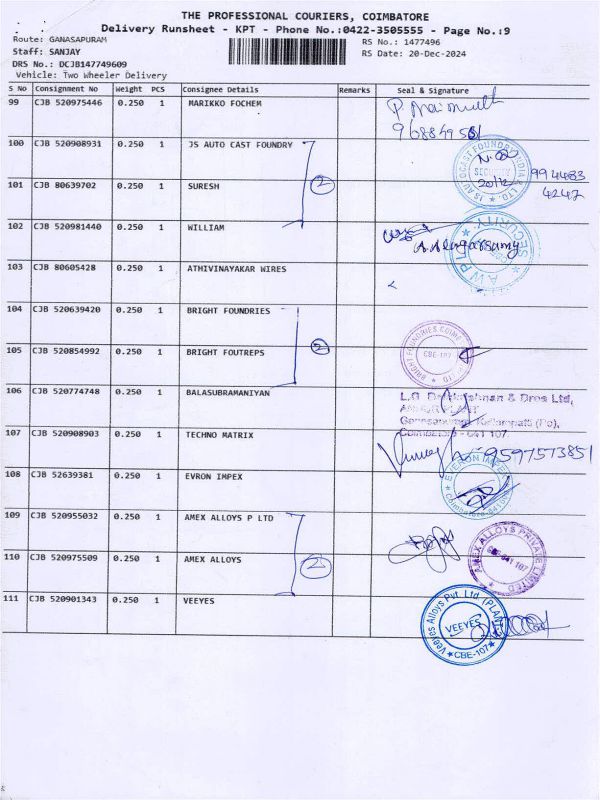 THE PROFESSIONAL COURIERS, COIMBATORE
Delivery Runsheet - KPT - Phone No.:0422-3505555 - Page No.:9
Route: GANASAPURAM
RS No.: 1477496
Staff: SANJAY
RS Date: 20-Dec-2024
DRS No.: DCJB147749609
Vehicle: Two Wheeler Delivery
S No Consignment No Weight PCS Consignee Details Remarks Seal & Signature
99 CJB 520975446 0.250 1 MARIKKO FOCHEM
100 CJB 520908931 0.250 1 JS AUTO CAST FOUNDRY
SECURITY
20/12
994483
4247
2
101 CJB 80639702 0.250 1 SURESH
102 CJB 520981440 0.250 1 WILLIAM
A. Alagarsamy
103 CJB 80605428 0.250 1 ATHIVINAYAKAR WIRES
104 CJB 520639420 0.250 1 BRIGHT FOUNDRIES
2
CBE-107
105 CJB 520854992 0.250 1 BRIGHT FOUTREPS
106 CJB 520774748 0.250 1 BALASUBRAMANIYAN
L.G. & Bros Ltd,
Coimbatore - 641 107
107 CJB 520908903 0.250 1 TECHNO MATRIX
9597573851
108 CJB 52639381 0.250 1 EVRON IMPEX
109 CJB 520955032 0.250 1 AMEX ALLOYS P LTD
AMEX ALLOYS PRIVATE LIMITED
CBE-641 107
110 CJB 520975509 0.250 1 AMEX ALLOYS
2
111 CJB 520901343 0.250 1 VEEYES
Veeyes Alloys Pvt. Ltd. (PLANT
VEEYES
CBE-107